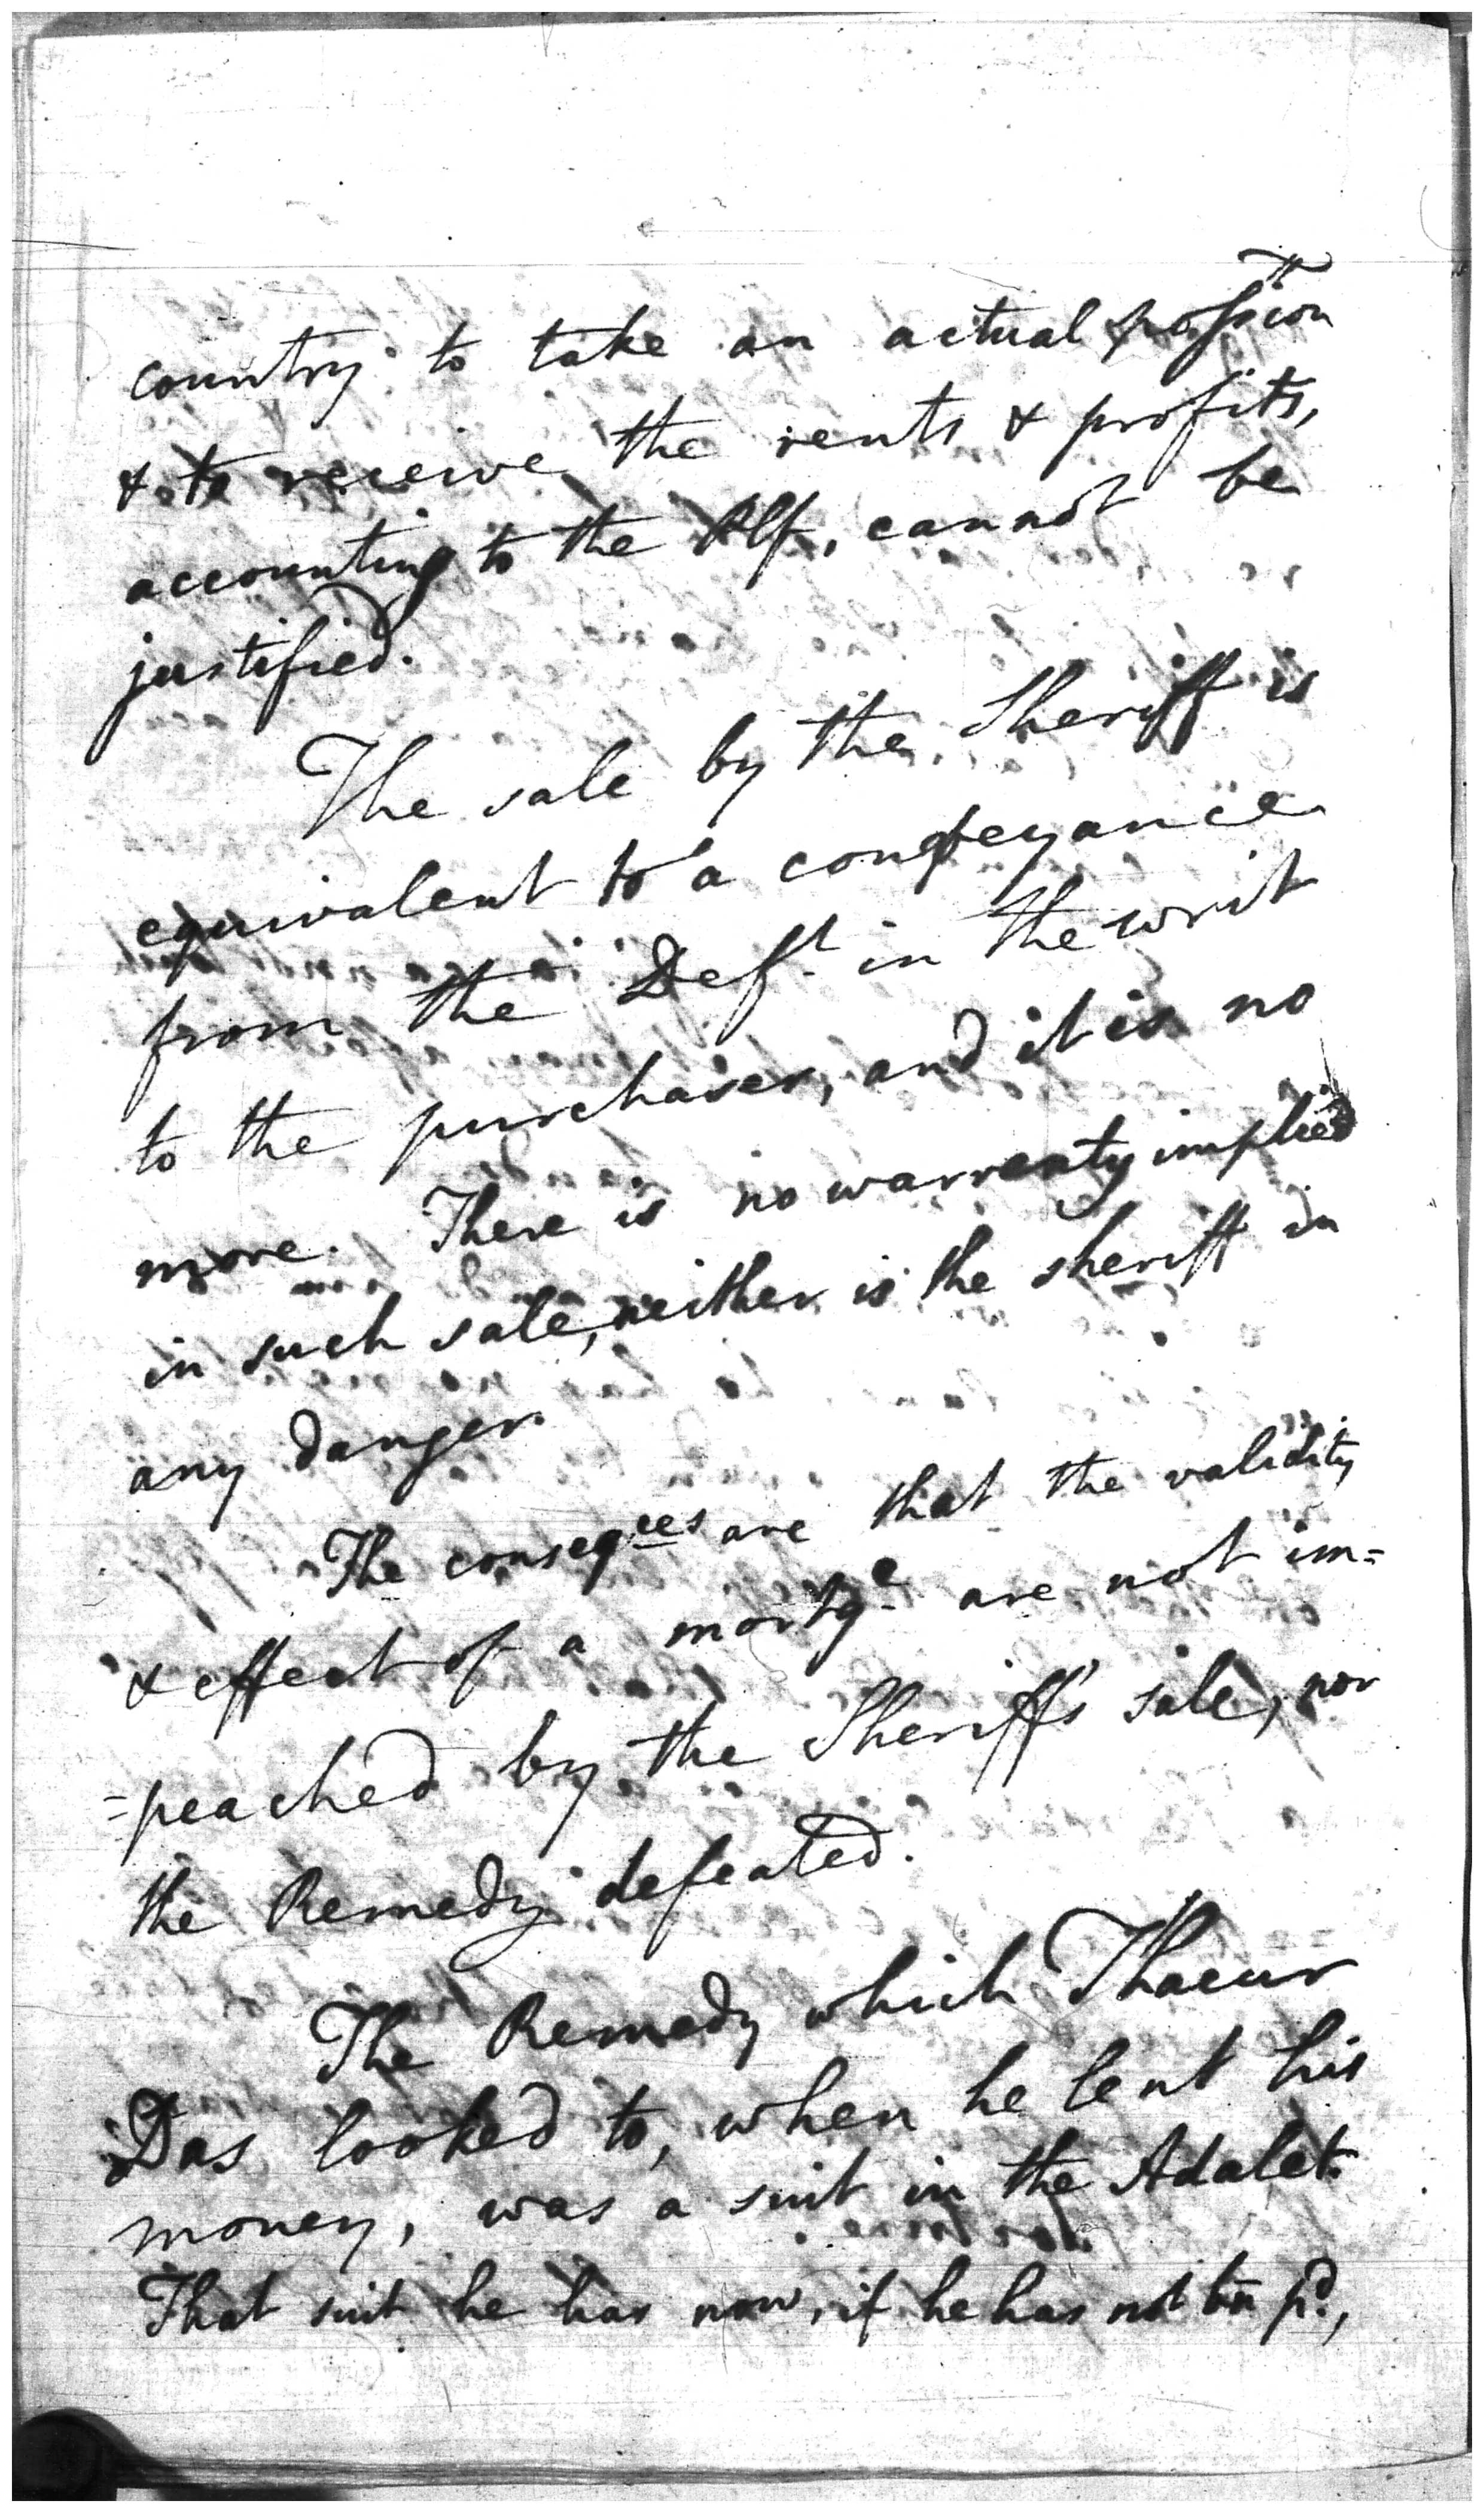 country to take an actual possion
& to receive the rents & profits,
accounting to the Plf, cannot be
justified.
The sale by the Sheriff is
equivalent to a conveyance
from the Deft. in the writ
to the purchaser, and it is no
more. There is no warranty implied
in such sale, neither is the sheriff in
any danger.
The conseqces are that the validity
& effect of a mortge are not im=
=peached by the Sheriff's sale, nor
the Remedy defeated.
The Remedy which Thacur
Das looked to, when he lent his
money, was a suit in the Adalet.
That suit he has now, if he has not bn pd.,